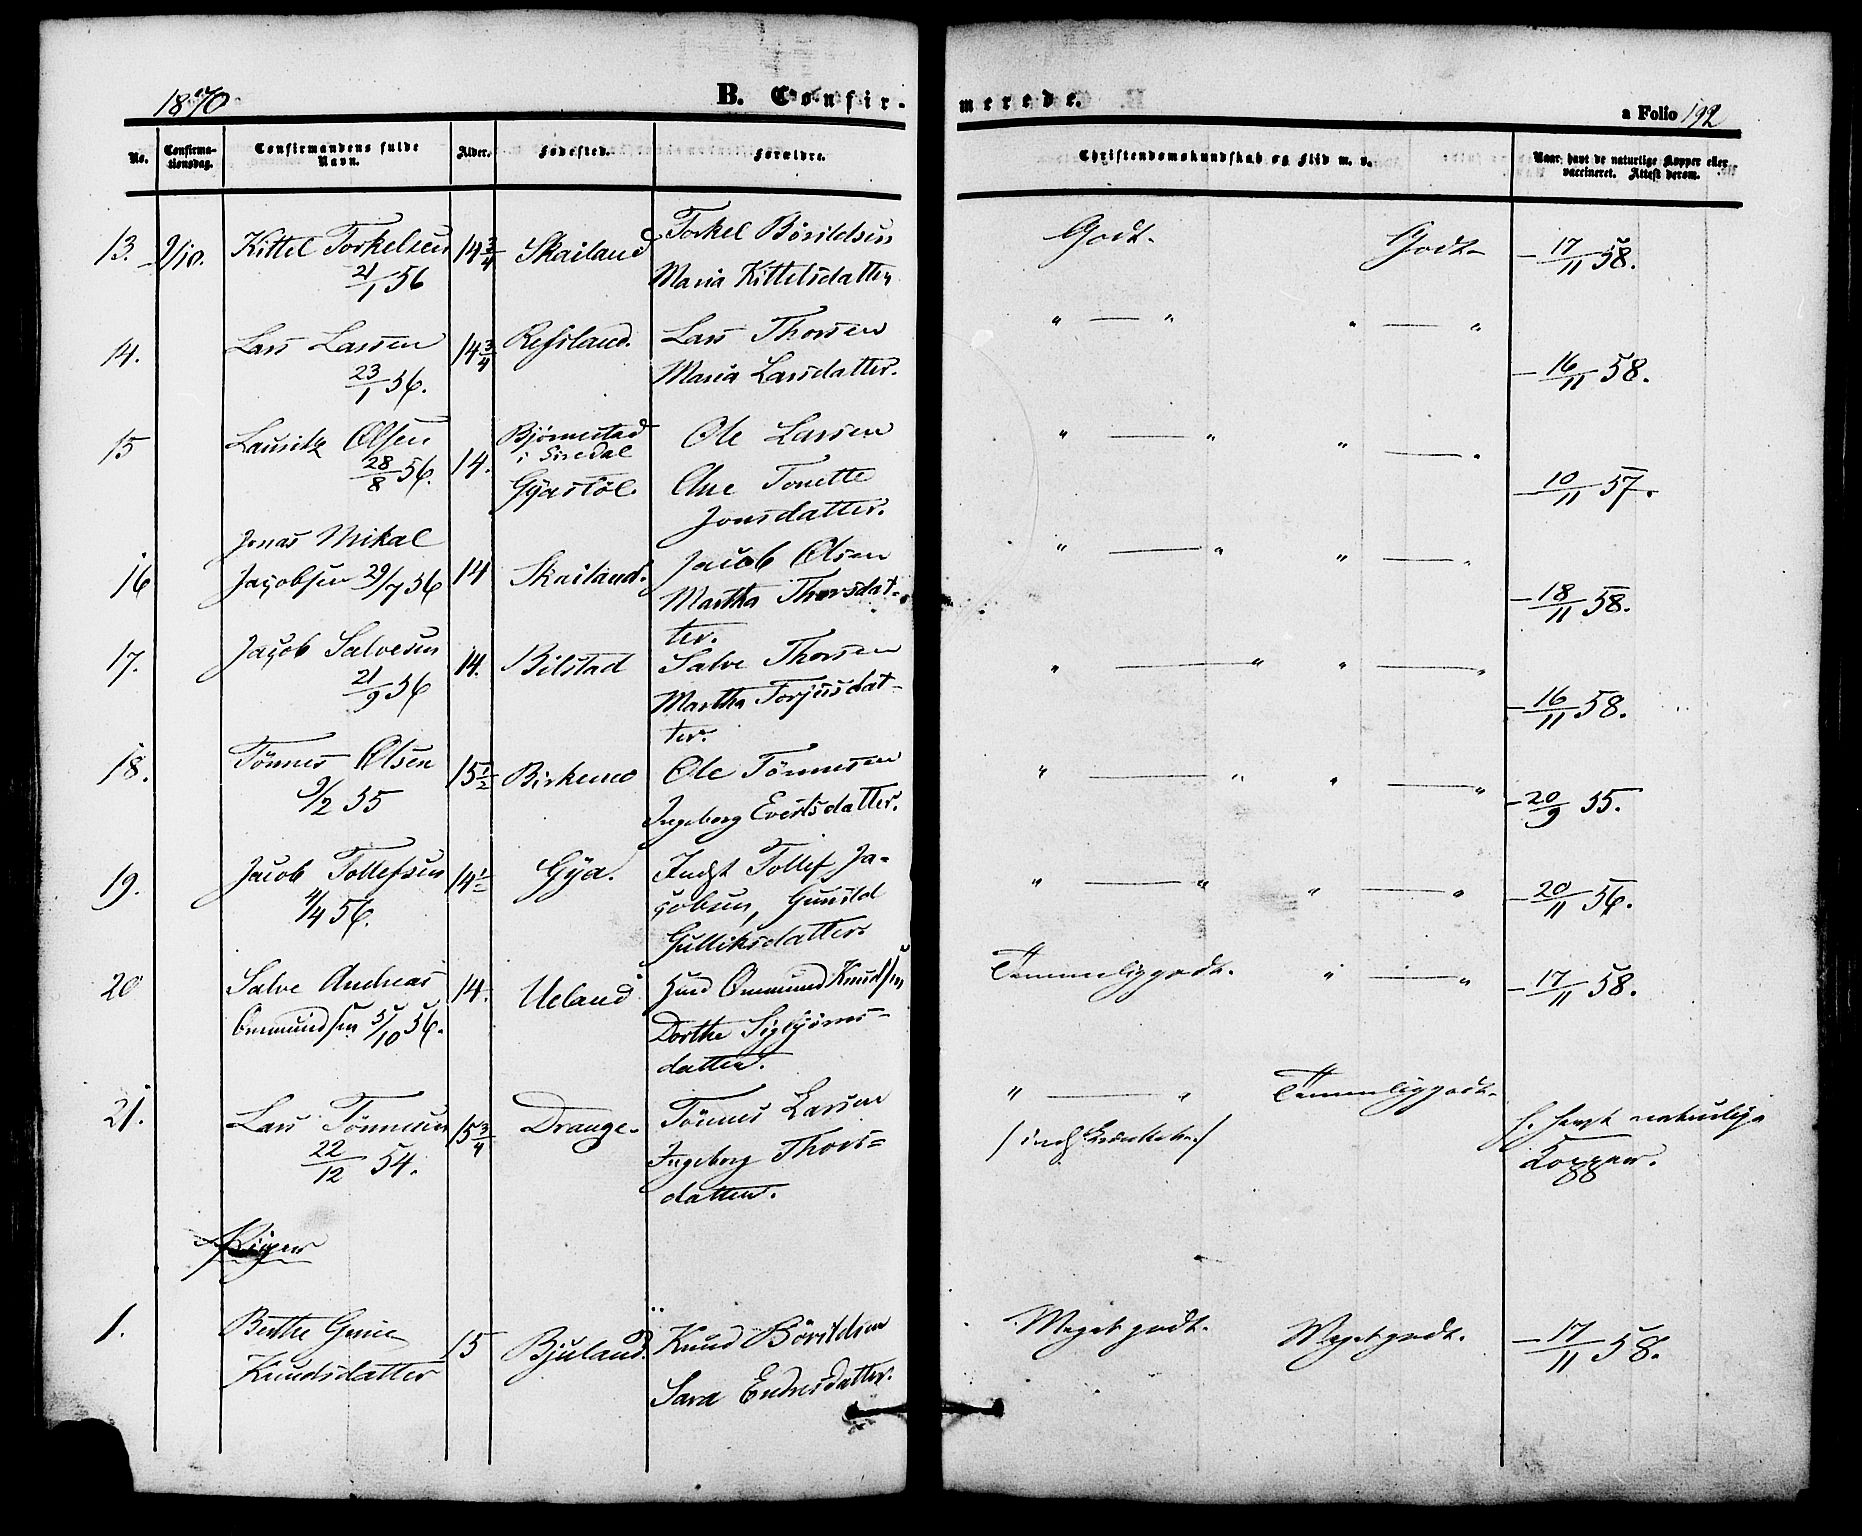 1870
B. Confir-
merede.
a Folio 192
No.
Confirma-
tionsdag.
Confirmandens fulde
Navn.
Alder.
Fødested.
Forældre.
Christendomskundskab og Flid m. v.
Naar havt de naturlige Kopper eller
vaccineret. Attest derom.
13. 9/10. Kittel Torkelsen 14 3/4 Skailand Torkel Börildsen Godt. Godt - 17/11 58.
21/1 56 Maria Kittelsdatter
14. Lars Larsen 14 3/4 Refsland. Lars Thorsen " — " " — "
23/1 56. Maria Larsdatter. - 16/11 58.
15 Lauritz Olsen 14. Bjørnestad Ole Larsen " — " " — "
i Siredal
28/8 56. Gyastöl. Ane Tonette - 10/11 57.
Jonsdatter.
Jonas Mikal
16 Jacobsen 29/7 56 14 Skailand. Jacob Olsen " — " " — "
Martha Thorsdat- - 18/11 58.
ter.
17. Jacob Salvesen 14. Bilstad Salve Thorsen " — " " — "
21/9 56 Martha Torjusdat- - 16/11 58.
ter.
18. Tönnes Olsen 15 1/2 Birkemo Ole Tönnesen " — " " — "
9/2 55 Ingeborg Evertsdatter. - 20/9 55.
19. Jacob Tollefsen 14 1/2 Gya. Indst Tollef Ja- " — " " — " - 20/11 56.
4/4 56. cobsen, Gunild
Gulliksdatter.
20 Salve Andreas 14. Ueland Huusm Ommund Knudsen Temmeliggodt. " — " - 17/11 58.
Ommundsen 5/10 56. Dorthe Sigbjörns-
datter.
21. Lars Tönnesen 15 3/4 Drange. Tönnes Larsen " — " Temmeliggodt.
22/12 54. Ingeborg Thors- h. havt naturlige
datter. Kopper.
Piger
1. Berthe Gurie 15 Bjuland. Knud Börildsen Meget godt. Meget godt. - 17/11 58.
Knudsdatter Sara Endresdatter.